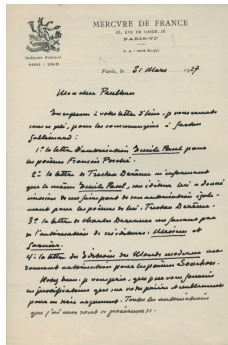 MERCVRE DE FRANCE
26, RVE DE CONDÉ, 26
PARIS-VIe
CHÈQUES POSTAUX
PARIS - 259-31
Paris, le 31 Mars 1937
Monsieur Paulhan
à votre lettre d'hier, je vous remets
sous ce pli, pour les communiquer à Gaston
Gallimard :
1º la lettre d'autorisation Emile Paul pour
les poèmes François Porché.
2º la lettre de Tristan Derème m'informant
que le même Emile Paul, son éditeur lui a donné
mission de me faire part de son autorisation
pour les poèmes de lui, Tristan Derème.
3º la lettre de Charles Derennes me faisant part
de l'autorisation de ses éditeurs : Messein et
Garnier.
4º la lettre des Editions du Monde moderne me
donnant autorisation pour les poèmes Souchon.
Notez bien, je vous prie, que
en justification que sur votre prière et
pour un seul argument. Toutes les autorisations
que j'ai sont